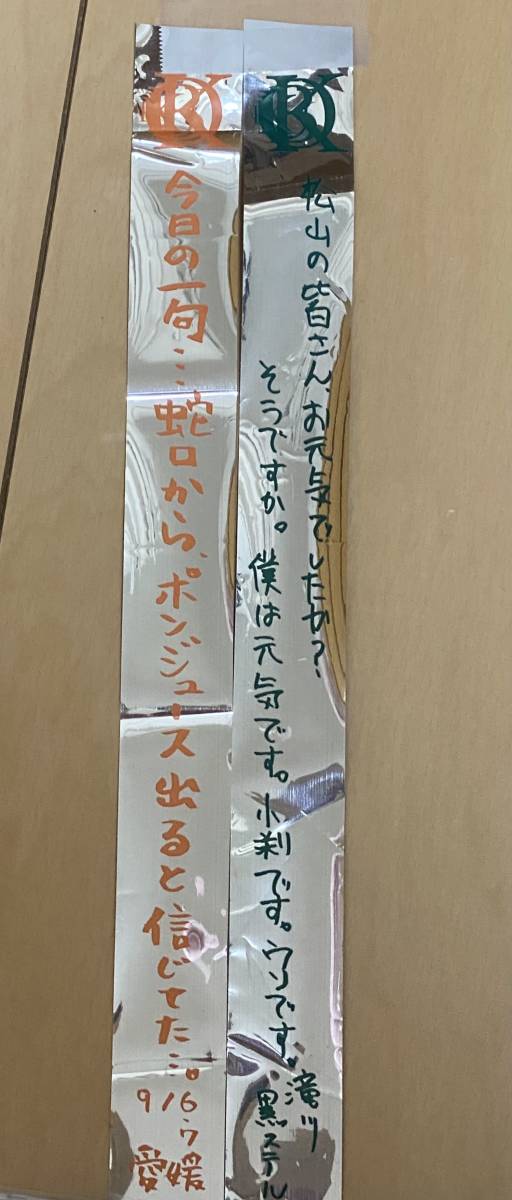 松山の皆さん、お元気でしたか?
そうですか。僕は元気です。小刹です。ウソです。
滝川
黒ステル
今日の一句…蛇口から、。ポンジュース出ると信じてた…。
9/6
愛媛